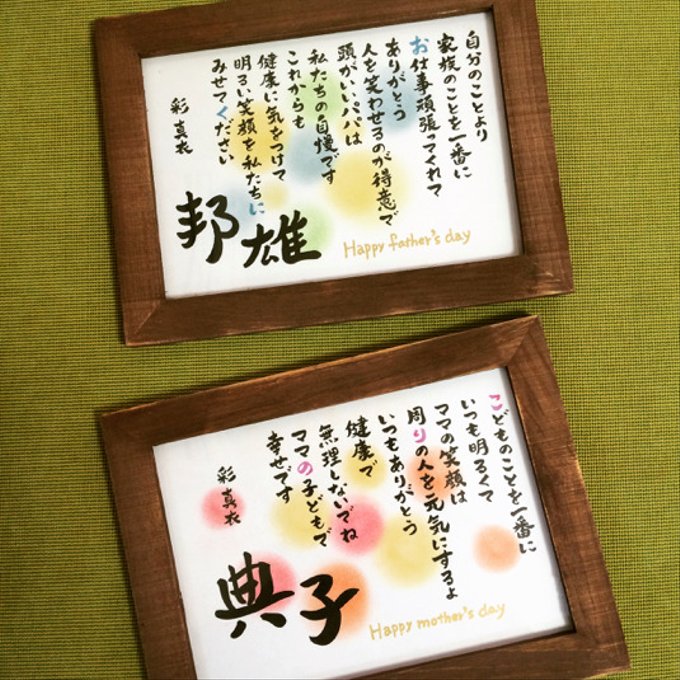 自分のことより
家族のことを一番に
お仕事頑張ってくれて
ありがとう
人を笑わせるのが得意で
頭がいいパパは
私たちの自慢です
これからも
健康に気をつけて
明るい笑顔を私たちに
みせてください
彩 真衣
邦雄
Happy father's day
こどものことを一番に
いつも明るくて
ママの笑顔は
周りの人を元気にするよ
いつもありがとう
健康で
無理しないでね
ママの子どもで
幸せです
彩 真衣
典子
Happy mother's day